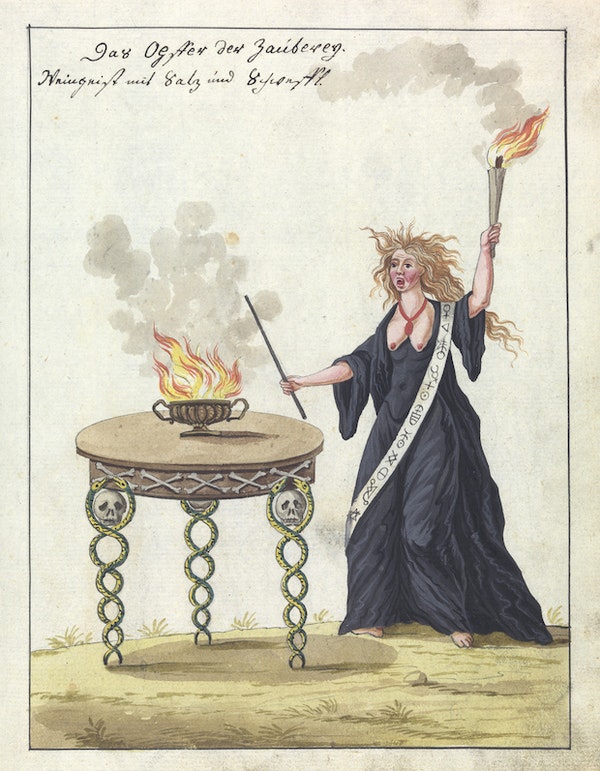 Das Opffer der Zauberey.
Weingeist mit Salz und Schwefl.